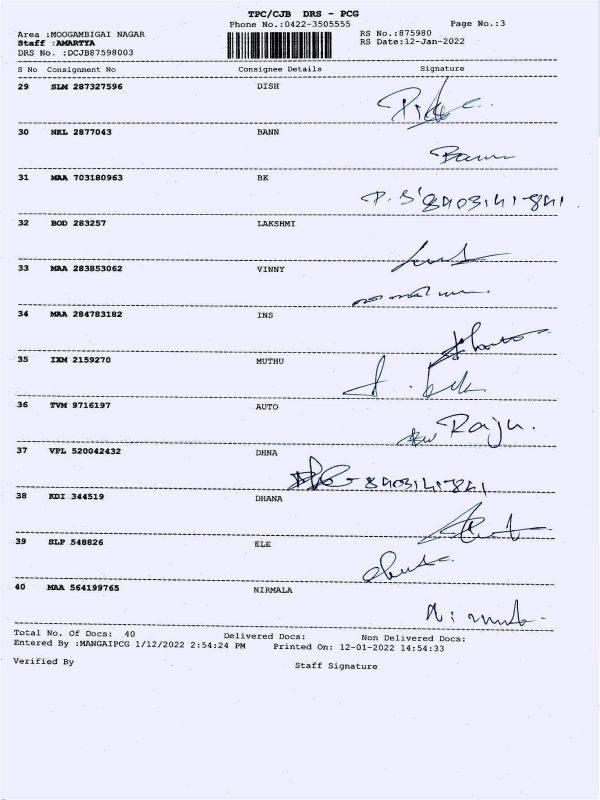 TPC/CJB DRS - PCG
Phone No.:0422-3505555
Page No.:3
Area :MOOGAMBIGAI NAGAR
RS No.:875980
Staff :AMARTYA
RS Date:12-Jan-2022
DRS No. :DCJB87598003
S No Consignment No Consignee Details Signature
29 SLM 287327596 DISH
30 NKL 2877043 BANN
Bann
31 MAA 703180963 BK
P. S' 8403141841
32 BOD 283257 LAKSHMI
33 MAA 283853062 VINNY
34 MAA 284783182 INS
35 IXM 2159270 MUTHU
36 TVM 9716197 AUTO
Raju.
37 VPL 520042432 DHNA
8403141841
38 KDI 344519 DHANA
39 SLP 548826 ELE
40 MAA 564199765 NIRMALA
Total No. Of Docs: 40 Delivered Docs: Non Delivered Docs:
Entered By :MANGAIPCG 1/12/2022 2:54:24 PM Printed On: 12-01-2022 14:54:33
Verified By Staff Signature